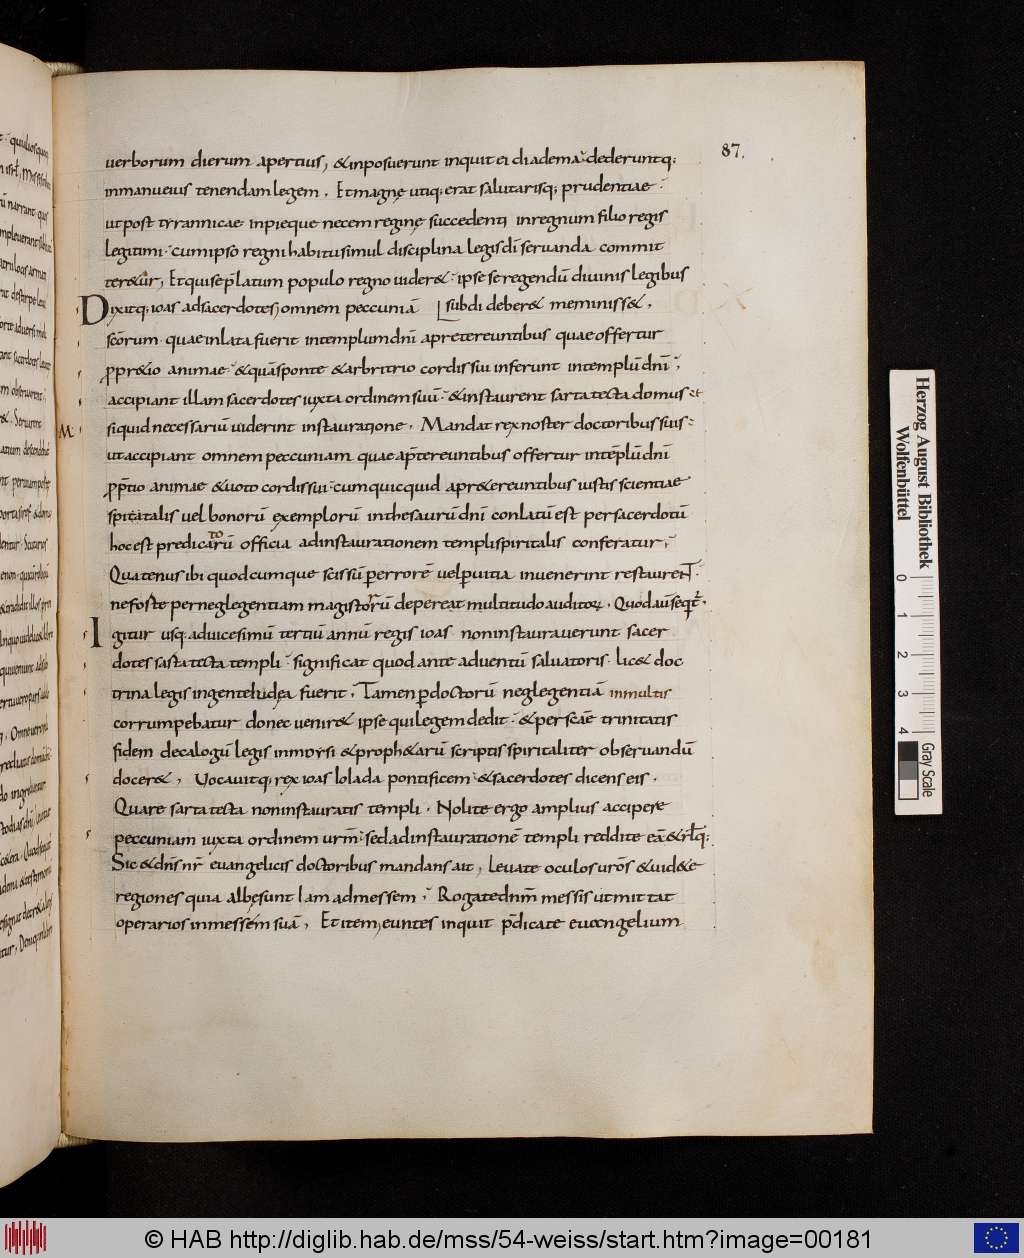 87.
uerborum dierum apertius, & inposuerunt inquit ei diadema dederuntq;
inmanu eius tenendam legem. Et magnę utiq; erat salutarisq; prudentiae
ut post tyrannicae inpieque necem reginę succedenti inregnum filio regis
legitimi cum ipso regni habitu simul disciplina legis dī seruanda commit
ter&ur, Et qui se p̄latum populo regno uider& ipse se regendū diuinis legibus
subdi deber& meminiss&.
Dixitq; ioas ad sacerdotes omnem peccuniā
scōrum quae inlata fuerit intemplum dn̄i apretereuntibus quae offertur
ppr&io animae & quā sponte & arbritrio cordis sui inferunt intemplū dn̄i;
accipiant illam sacerdotes iuxta ordinem suū & instaurent sarta tecta domus
M
siquid necessariū uiderint instauratione. Mandat rex noster doctoribus suis
ut accipiant omnem peccuniam quae ap̄tereuntibus offertur intēplū dn̄i
pp̄tio animae & uoto cordis sui cum quicquid apr&ereuntibus iustis scientiae
spiritalis uel bonorū exemplorū inthesaurū dn̄i conlatū est per sacerdotū
hoc est predicatorū officia adinstaurationem templi spiritalis conferatur;
Quatenus ibi quodcumque scissū perrorē uel puitia inuenerint restaurent
ne forte per neglegentiam magistrorū depereat multitudo auditorꝝ. Quod aū seqt̄.
Igitur usq; ad uicesimū tertiū annū regis ioas non instaurauerunt sacer
dotes sasta tecta templi significat quod ante aduentū saluatoris lic& doc
trina legis in gente iudea fuerit. Tamen p doctorū neglegentiā inmultis
corrumpebatur donec uenir& ipse qui legem dedit & per scāe trinitatis
fidem decalogū legis inmoysi & proph&arū scriptis spiritaliter obseruandū
docer&, Uocauitq; rex ioas Ioiada pontificem & sacerdotes dicens eis.
Quare sarta tecta non instauratis templi. Nolite ergo amplius accipere
peccuniam iuxta ordinem urm̄ sed ad instaurationē templi reddite eā & rlq;
Sic & dn̄s nr̄ euangelicis doctoribus mandans ait, Leuate oculos urōs & uid&e
regiones quia albę sunt Iam admessem; Rogate dnm̄ messis ut mittat
operarios inmessem suā, Et item, euntes inquit p̄dicate euangelium
Herzog August Bibliothek
Wolfenbüttel
0 1 2 3 4
Gray Scale
© HAB http://diglib.hab.de/mss/54-weiss/start.htm?image=00181